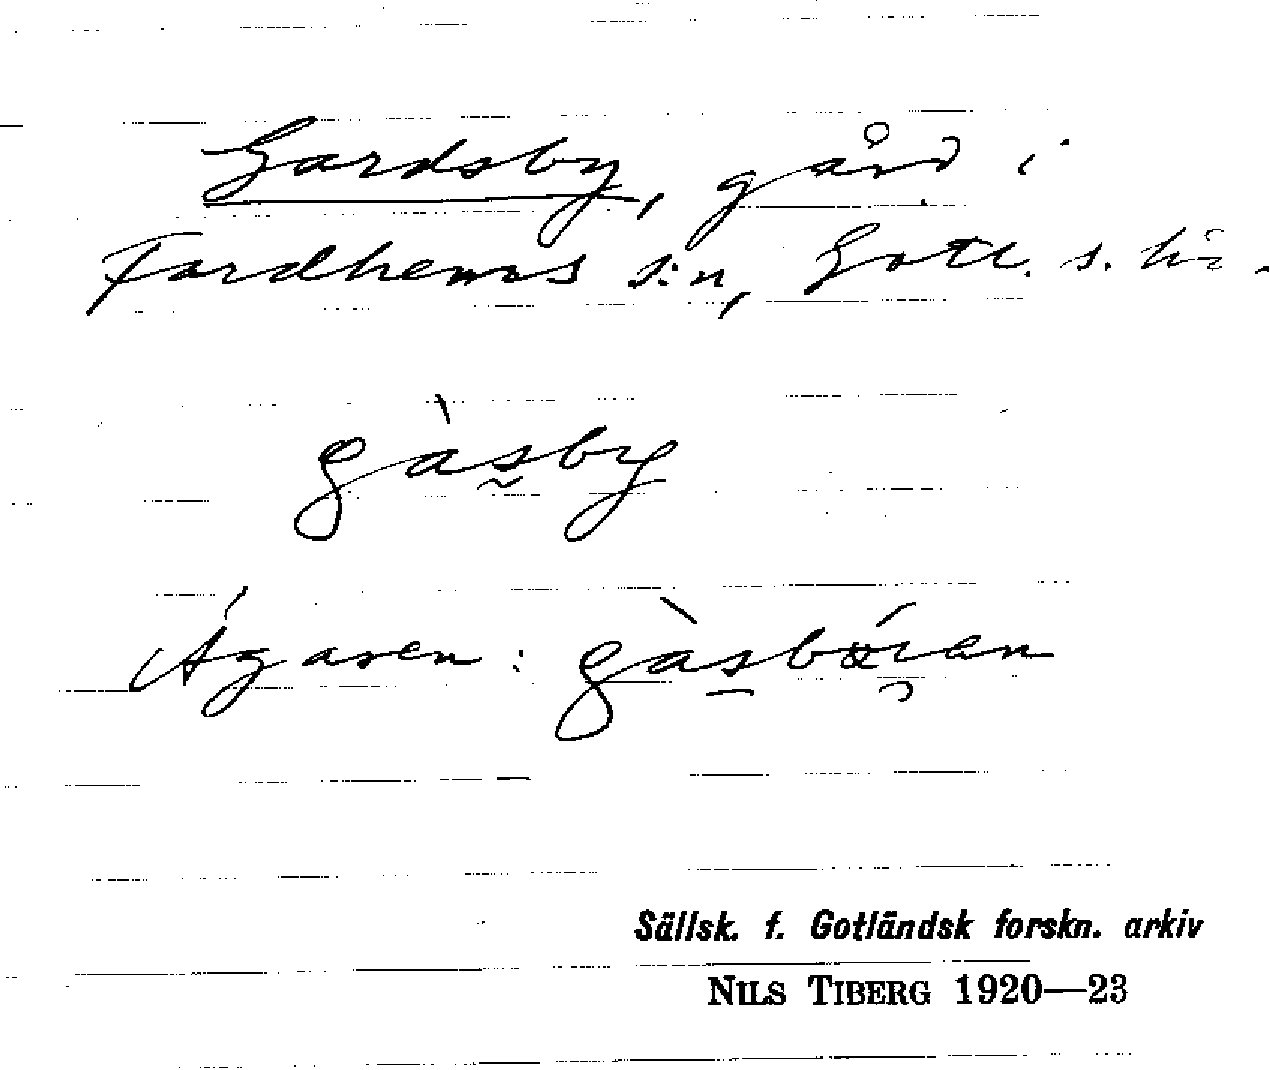 Gardsby, gård i
Fardhems s:n, Gotl. s. hd.
gàsby
Ägaren: gàsbören
Sällsk. f. Gotländsk forskn. arkiv
NILS TIBERG 1920—23